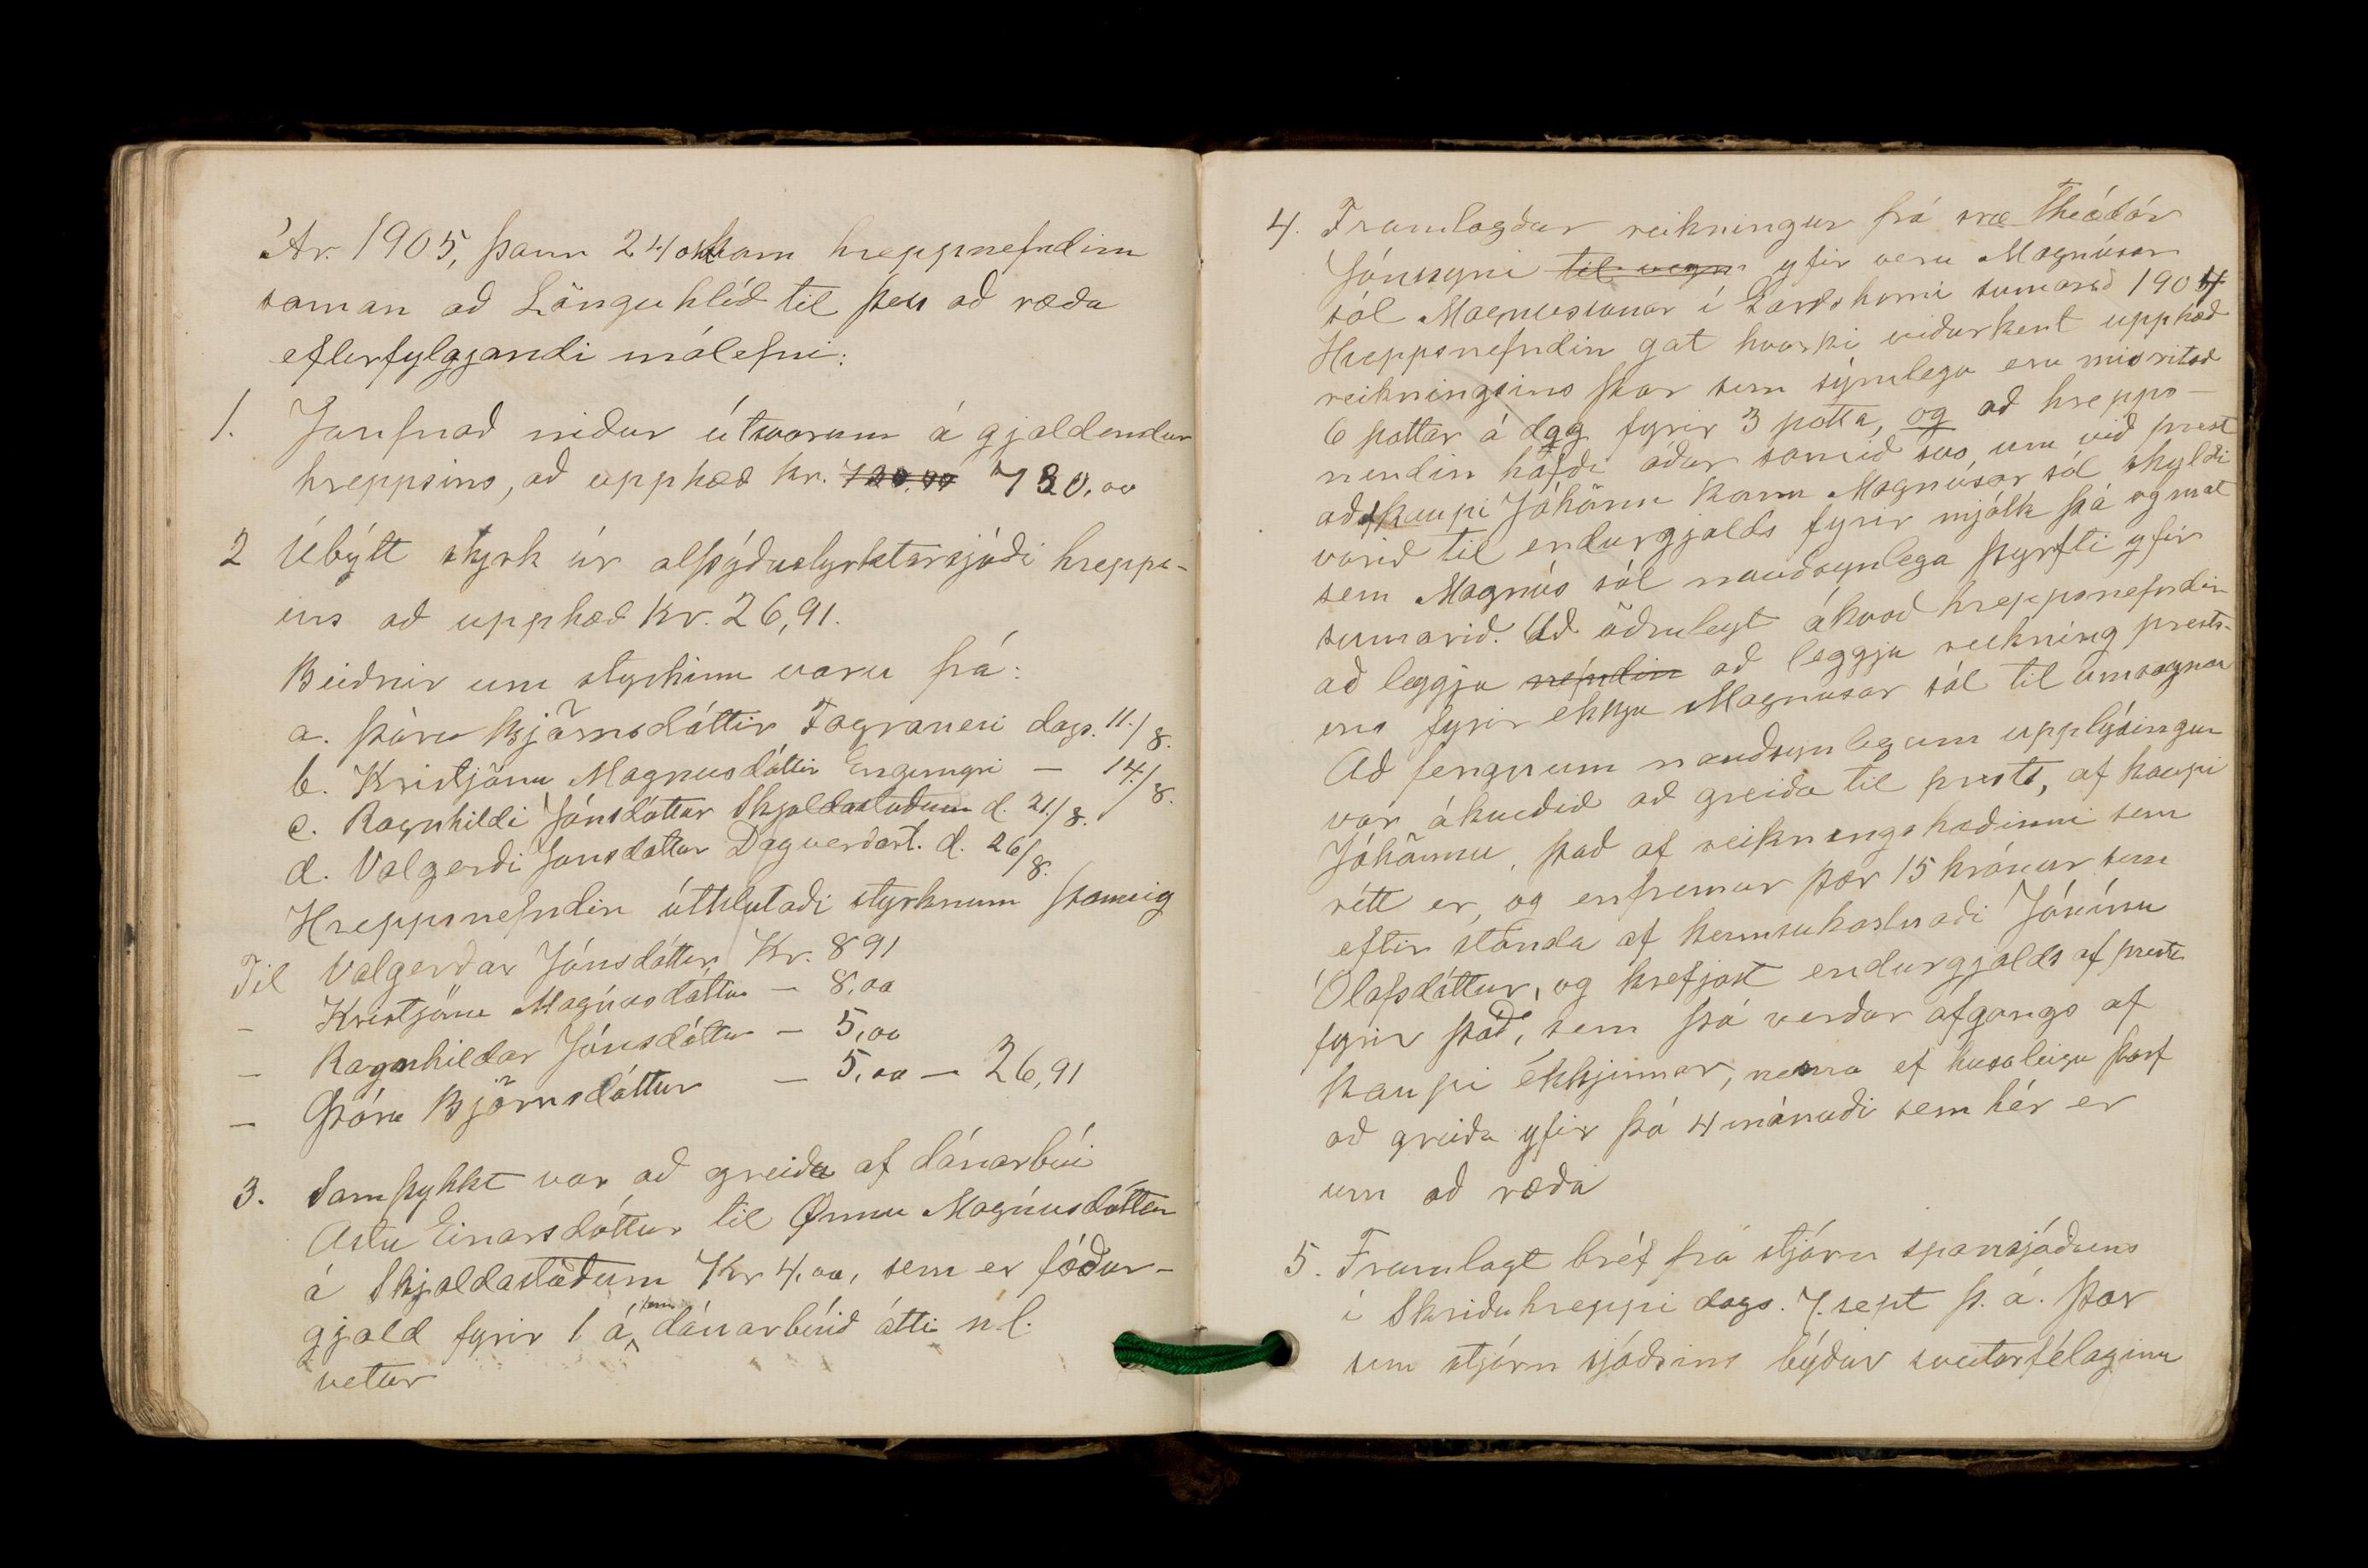 Ár. 1905, þann 24 okt kom hreppnefndin
saman að Lönguhlíð til þess að ræða
eftirfylgjandi málefni:
1. Jafnað niður útsvarum á gjaldendur
hreppsins, að upphæð kr. 720,00 780,00
2 Útbýtt styrk úr alþýðustyrktarsjóði hrepps-
ins að upphæð Kr. 26,91.
Beiðnir um styrkinn voru frá:
a. Þóru Björnsdóttir Fagranesi dags. 11./8.
b. Kristjönu Magnusdóttir Engimyri — 14./8.
c. Ragnhildi Jónsdóttur Skjaldastöðum d. 21./8.
d. Valgerði Jonsdóttur Dagverðart. d. 26/8.
Hreppsnefndin úthlutaði styrknum þannig
Til Valgerðar Jónsdóttur Kr. 8 91
— Kristjönu Magnúsdóttur — 8,00
— Ragnhildar Jónsdóttur — 5,00
— Þóru Björnsdóttur — 5,00 — 26,91
3. Samþykkt var að greiða af dánarbúi
Astu Einarsdóttur til Önnu Magnúsdóttur
á Skjaldastöðum Kr 4,00, sem er fóður-
gjald fyrir 1 á sem dánarbúið átti s.l.
vetur
4. Framlagður reikningur frá sra Theódór
Jónssyni til vegn yfir veru Magnúsar
sál Magnussonar í Garðshorni sumarið 1904
Hreppsnefndin gat hvorki viðurkent upphæð
reikningsins þar sem sýnilega eru misritað
6 pottar á dgg fyrir 3 potta, og að hrepps-
nendin hafði áður samið svo um við prest
að kaupi Jóhönnu konu Magnúsar sál skyldi
varið til endurgjalds fyrir mjólk þá og mat
sem Magnús sál nauðsynlega þyrfti yfir
sumarið. Að öðruleyt ákvað hreppsnefndin
að leggja nefndin að leggja reikning prests-
ins fyrir ekkju Magnusar sál til umsagnar
Að fengnum nauðsynlegum upplýsingum
var ákveðið að greiða til prests, af kaupi
Jóhönnu, það af reikningshæðinni sem
rétt er, og enfremur þær 15 krónur sem
eftir stánda af kennsukostnaði Jónínu
Ólafsdóttur, og krefjast endurgjalds af presti
fyrir það, sem þá verður afgangs af
kaupi ekkjunnar, nema ef husaleigu þarf
að greiða yfir þá 4 mánuði sem hér er
um að ræða
5. Framlagt bréf frá stjórn sparisjóðsins
í Skriðuhreppi dags. 7. sept þ. á. Þar
sem stjórn sjóðsins býður sveitarfélaginu